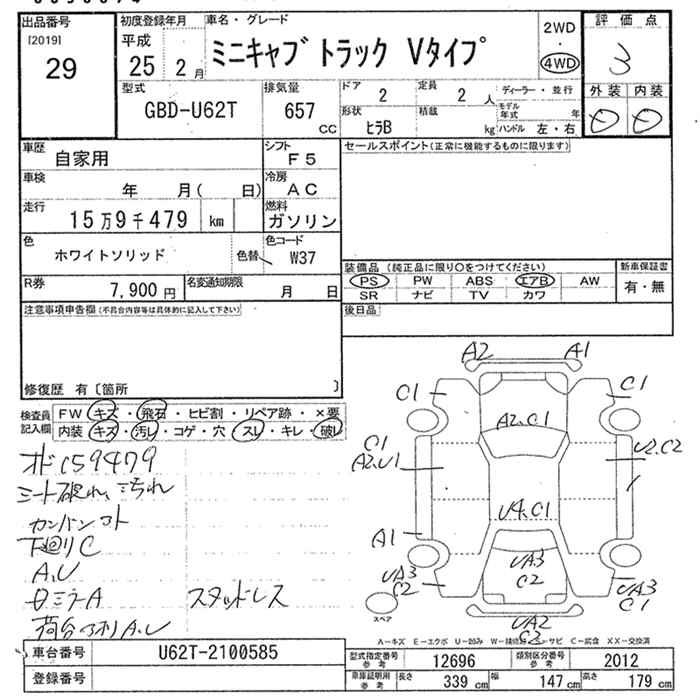 出品番号
[2019]
29
初度登録年月
平成
25 2 月
車名・グレード
ミニキャブトラック Vタイプ
2WD
・
4WD
評価点
3
外装 内装
D D
型式
GBD-U62T
排気量
657
cc
ドア
2
定員
2 人
形状
ヒラB
積載
kg
ディーラー・並行
モデル年式 年
ハンドル 左・右
車歴
自家用
シフト
F5
車検
年 月( 日)
冷房
AC
走行
15万9千479 km
燃料
ガソリン
色
ホワイトソリッド
色替
色コード
W37
R券
7,900 円
名変通知期限
月 日
セールスポイント(正常に機能するものに限ります)
装備品 (純正品に限り○をつけてください)
PS PW ABS エアB AW
SR ナビ TV カワ
新車保証書
有・無
後日品
注意事項申告欄(不具合内容等は具体的に記入して下さい)
修復歴 有〔箇所 〕
検査員記入欄
FW キズ・飛石・ヒビ割・リペア跡・×要
内装 キズ・汚れ・コゲ・穴・スレ・キレ・破れ
オドc159479
シート破れ,汚れ
下廻りC
A,U
ロミラーA
スタッドレス
A2 A1
C1 C1
A2,C1
C1
A2,U1
U2,C2
U4,C1
A1
UA3
C2
UA3
C2
UA3
C1
UA2
C2
スペア
A-キズ E-エクボ U-凹み W-補修跡 S-サビ C-腐食 XX-交換済
車台番号
U62T-2100585
登録番号
型式指定番号
参考
12696
類別区分番号
参考
2012
車庫証明用
参考
長さ
339 cm
幅
147 cm
高さ
179 cm